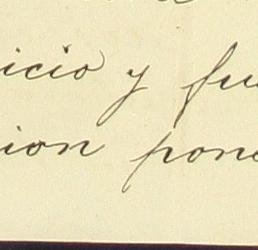 icio y fu
ion pone